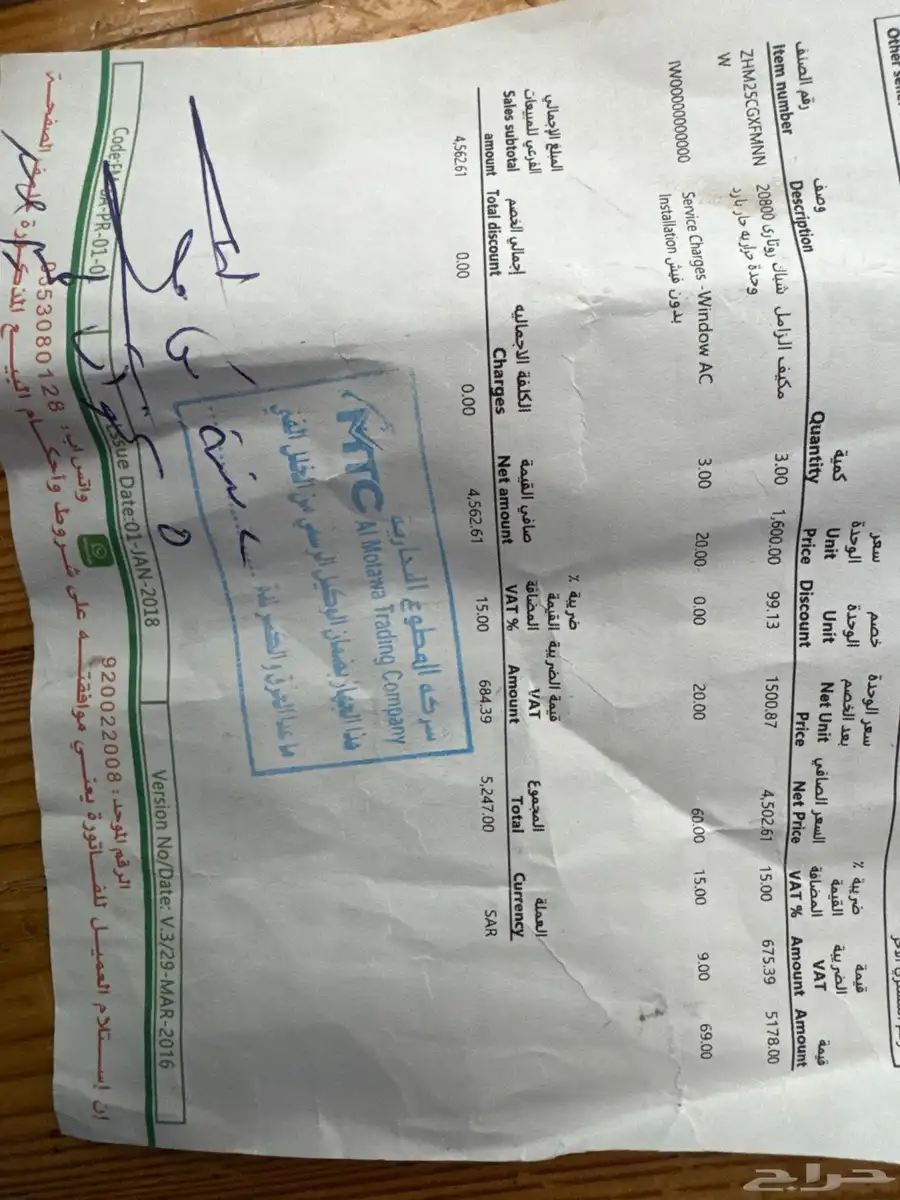 Other seller
رقم الصنف وصف كمية سعر الوحدة خصم الوحدة سعر الوحدة بعد الخصم السعر الصافي ضريبة % القيمة المضافة قيمة الضريبة قيمة
Item number Description Quantity Unit Price Unit Discount Net Unit Price Net Price VAT % VAT Amount Amount
ZHM25CGXFMNN مكيف الزامل شباك روتاري 20800 3.00 1,600.00 99.13 1500.87 4,502.61 15.00 675.39 5178.00
W وحدة حرارية حار بارد
IW00000000000 Service Charges -Window AC 3.00 20.00 0.00 20.00 60.00 15.00 9.00 69.00
Installation بدون فيش
المبلغ الإجمالي الفرعي للمبيعات إجمالي الخصم الكلفة الاجماليه صافي القيمة ضريبة % القيمة المضافة قيمة الضريبة المجموع العملة
Sales subtotal amount Total discount Charges Net amount VAT % VAT Amount Total Currency
4,562.61 0.00 0.00 4,562.61 15.00 684.39 5,247.00 SAR
شركة المطوع التجارية
MTC Al Motawa Trading Company
هذا الجهاز بضمان الوكيل الرسمي من الخلل الفني
ما عدا الحرق و الكسر لمدة
سنة
Issue Date:01-JAN-2018
Version No/Date: V.3/29-MAR-2016
واتس اب:
الرقم الموحد: 920022008
إن إستلام العميل للفاتورة يعني موافقته على شروط وأحكام البيع المذكورة
حراج